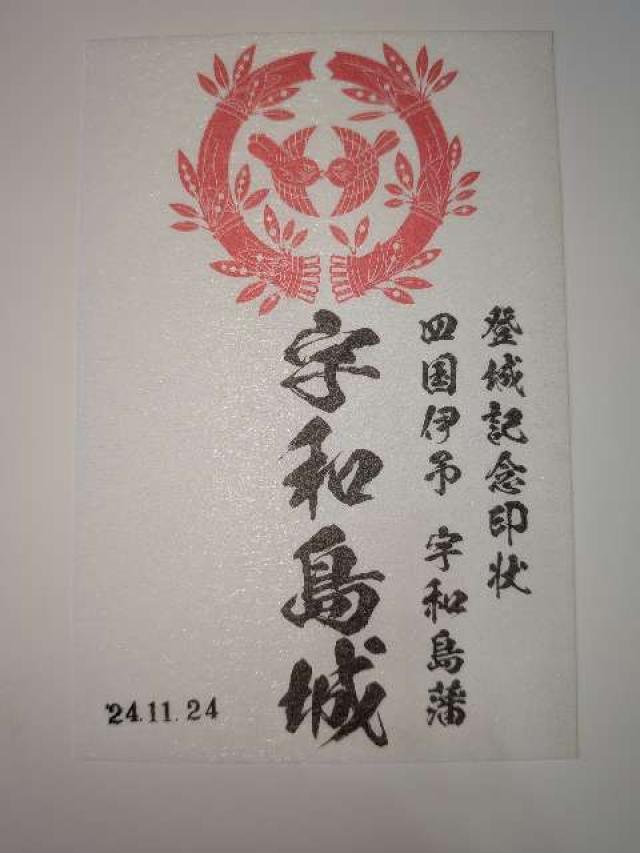 登城記念印状
四国伊予 宇和島藩
宇和島城
'24.11.24